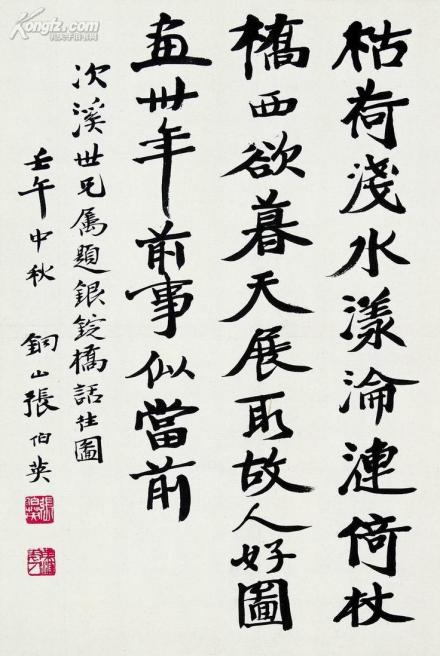 Kongfz.com
枯荷淺水漾淪漣倚杖
橋西欲暮天展取故人好圖
畫卅年前事似當前
次溪世兄属題銀錠橋話往圖
壬午中秋 銅山張伯英
張伯英